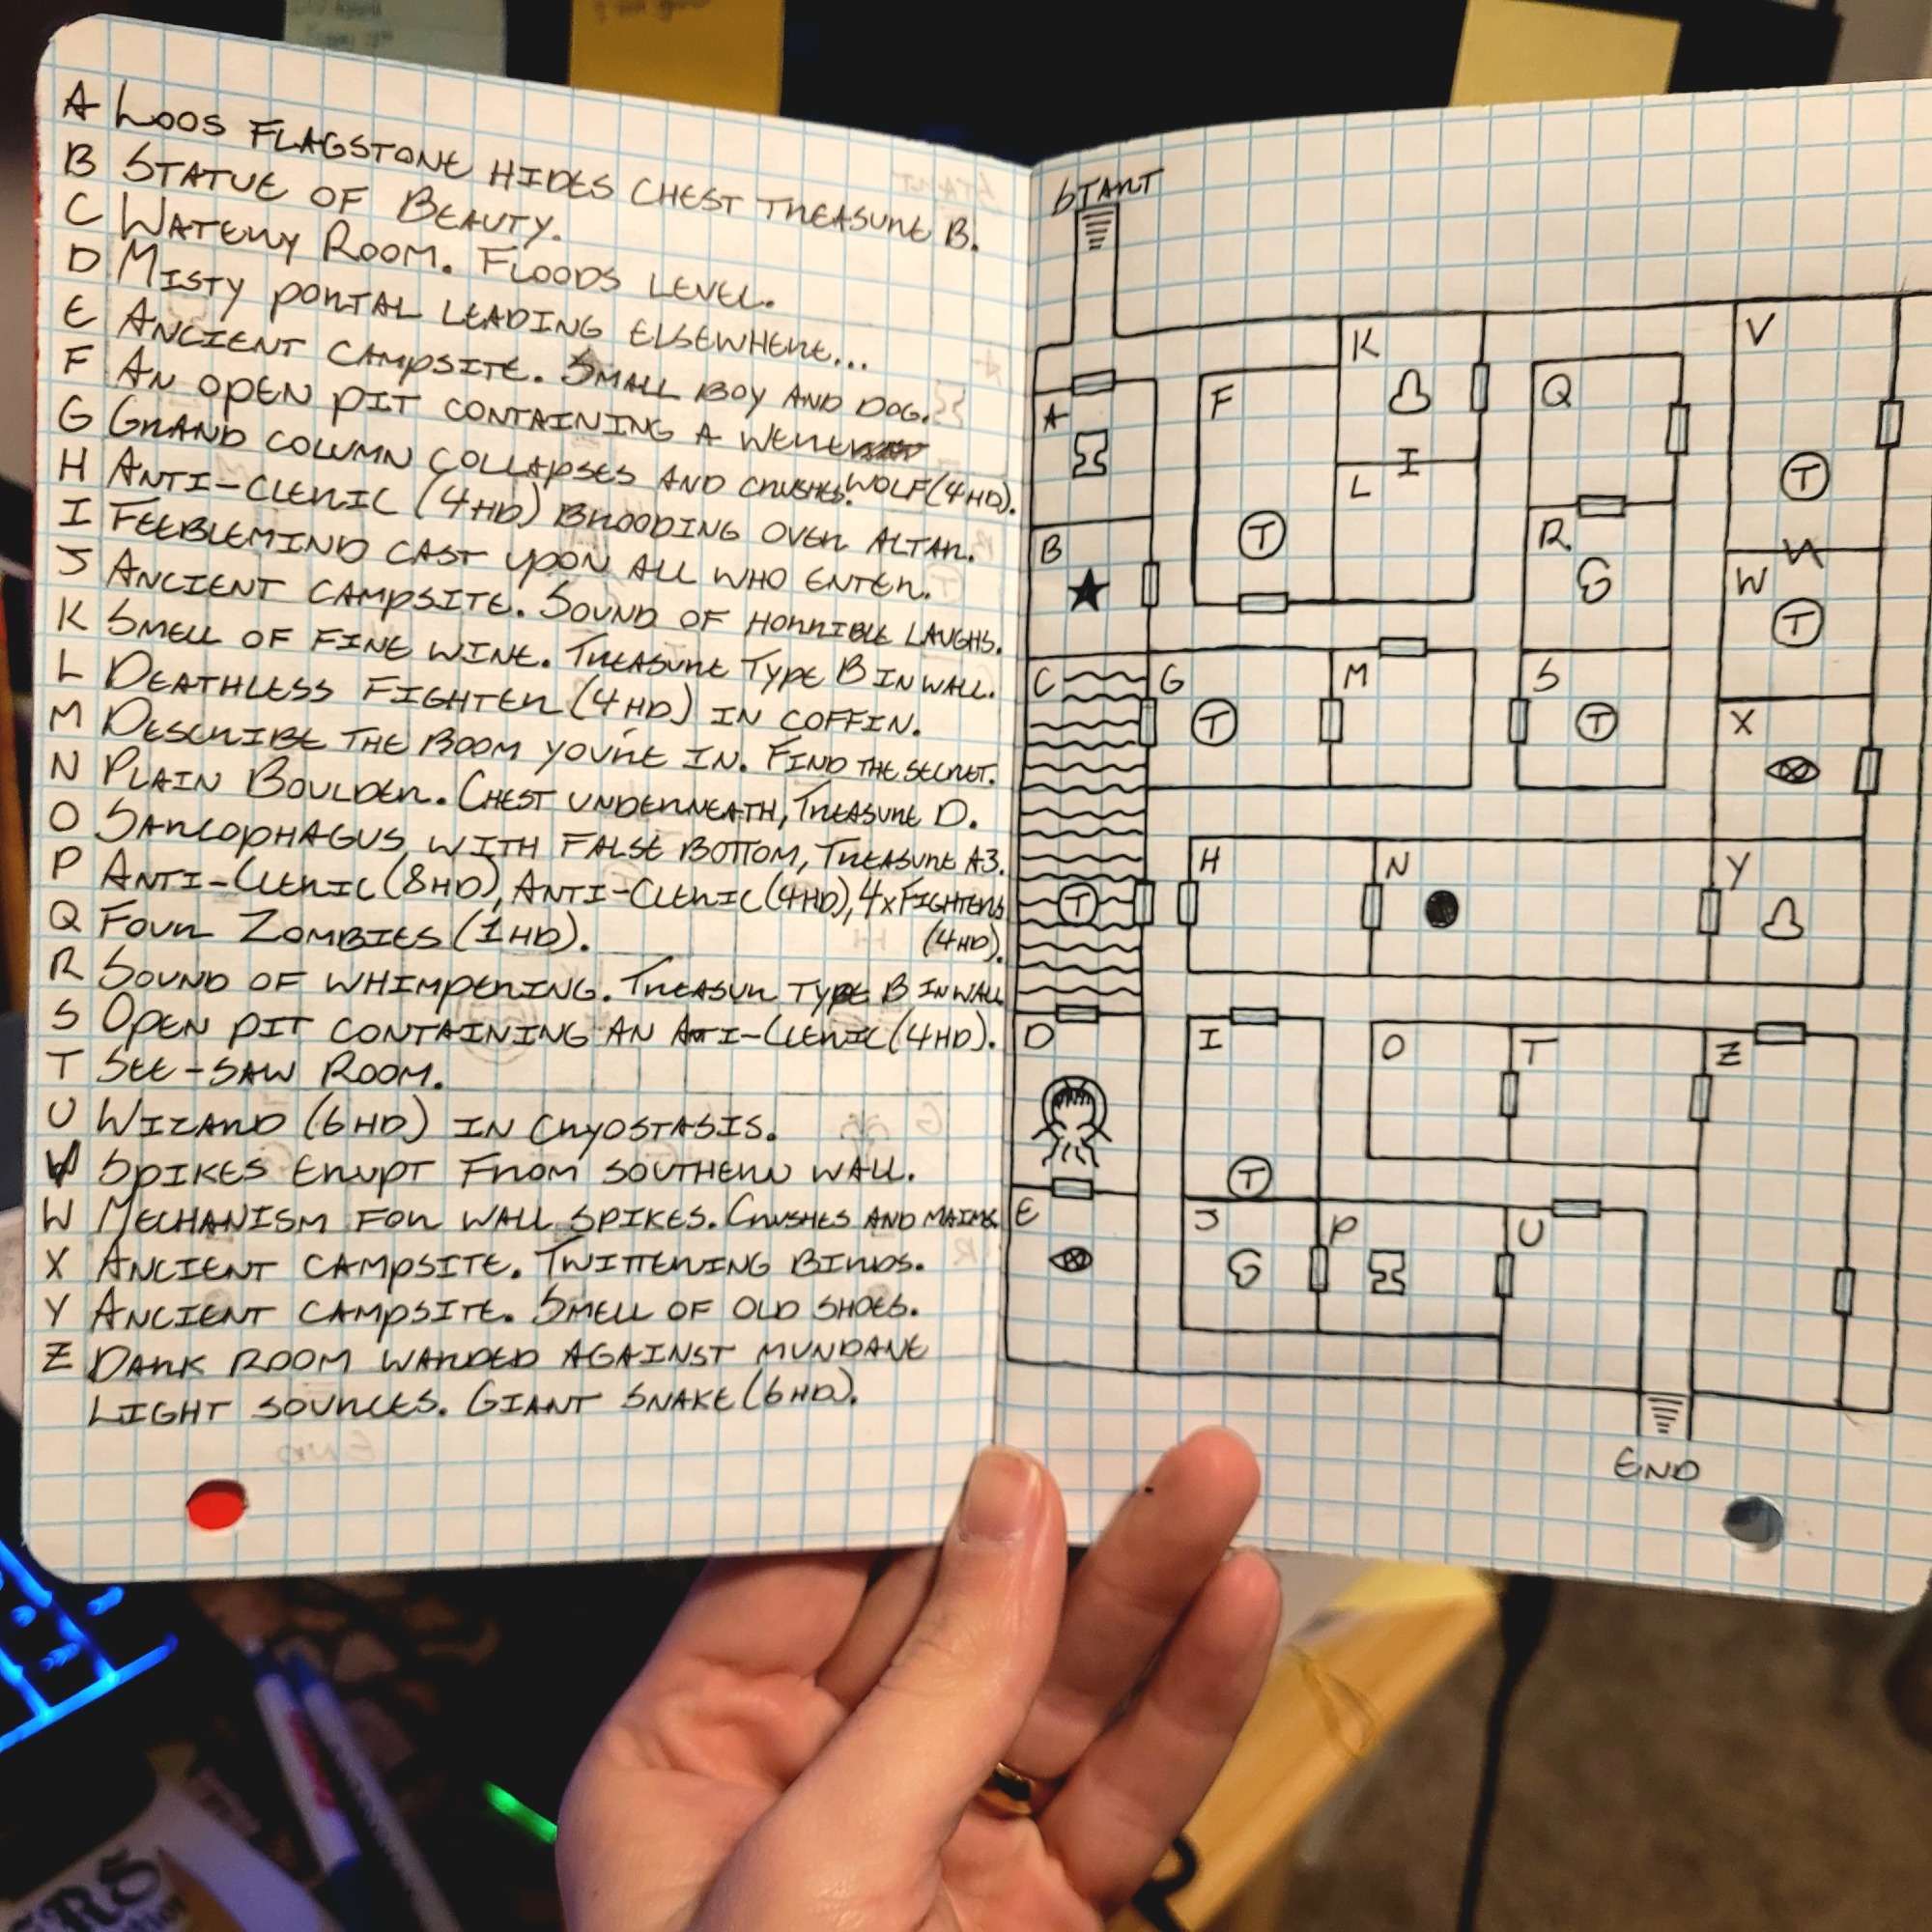 A LOOS FLAGSTONE HIDES CHEST TREASURE B.
B STATUE OF BEAUTY.
C WATERY ROOM. FLOODS LEVEL.
D MISTY PORTAL LEADING ELSEWHERE...
E ANCIENT CAMPSITE. SMALL BOY AND DOG.
F AN OPEN PIT CONTAINING A WERE
WOLF (4HD).
G GRAND COLUMN COLLAPSES AND CRUSHES.
H ANTI-CLERIC (4HD) BROODING OVER ALTAR.
I FEEBLEMIND CAST UPON ALL WHO ENTER.
J ANCIENT CAMPSITE. SOUND OF HORRIBLE LAUGHS.
K SMELL OF FINE WINE. TREASURE TYPE B IN WALL.
L DEATHLESS FIGHTER (4HD) IN COFFIN.
M DESCRIBE THE ROOM YOU'RE IN. FIND THE SECRET.
N PLAIN BOULDER. CHEST UNDERNEATH, TREASURE D.
O SARCOPHAGUS WITH FALSE BOTTOM, TREASURE A3.
P ANTI-CLERIC (8HD), ANTI-CLERIC (4HD), 4xFIGHTERS
(4HD).
Q FOUR ZOMBIES (1HD).
R SOUND OF WHIMPERING. TREASUR TYPE B IN WALL
S OPEN PIT CONTAINING AN ANTI-CLERIC (4HD).
T SEE-SAW ROOM.
U WIZARD (6HD) IN CRYOSTASIS.
V SPIKES ERUPT FROM SOUTHERN WALL.
W MECHANISM FOR WALL SPIKES. CRUSHES AND MAIMS.
X ANCIENT CAMPSITE. TWITTERING BIRDS.
Y ANCIENT CAMPSITE. SMELL OF OLD SHOES.
Z DARK ROOM WARDED AGAINST MUNDANE
LIGHT SOURCES. GIANT SNAKE (6HD).
START
K
V
F
Q
A
L
T
B
T
R
W
T
C
G
M
S
T
T
X
H
N
Y
T
D
I
O
T
Z
T
E
J
P
U
END